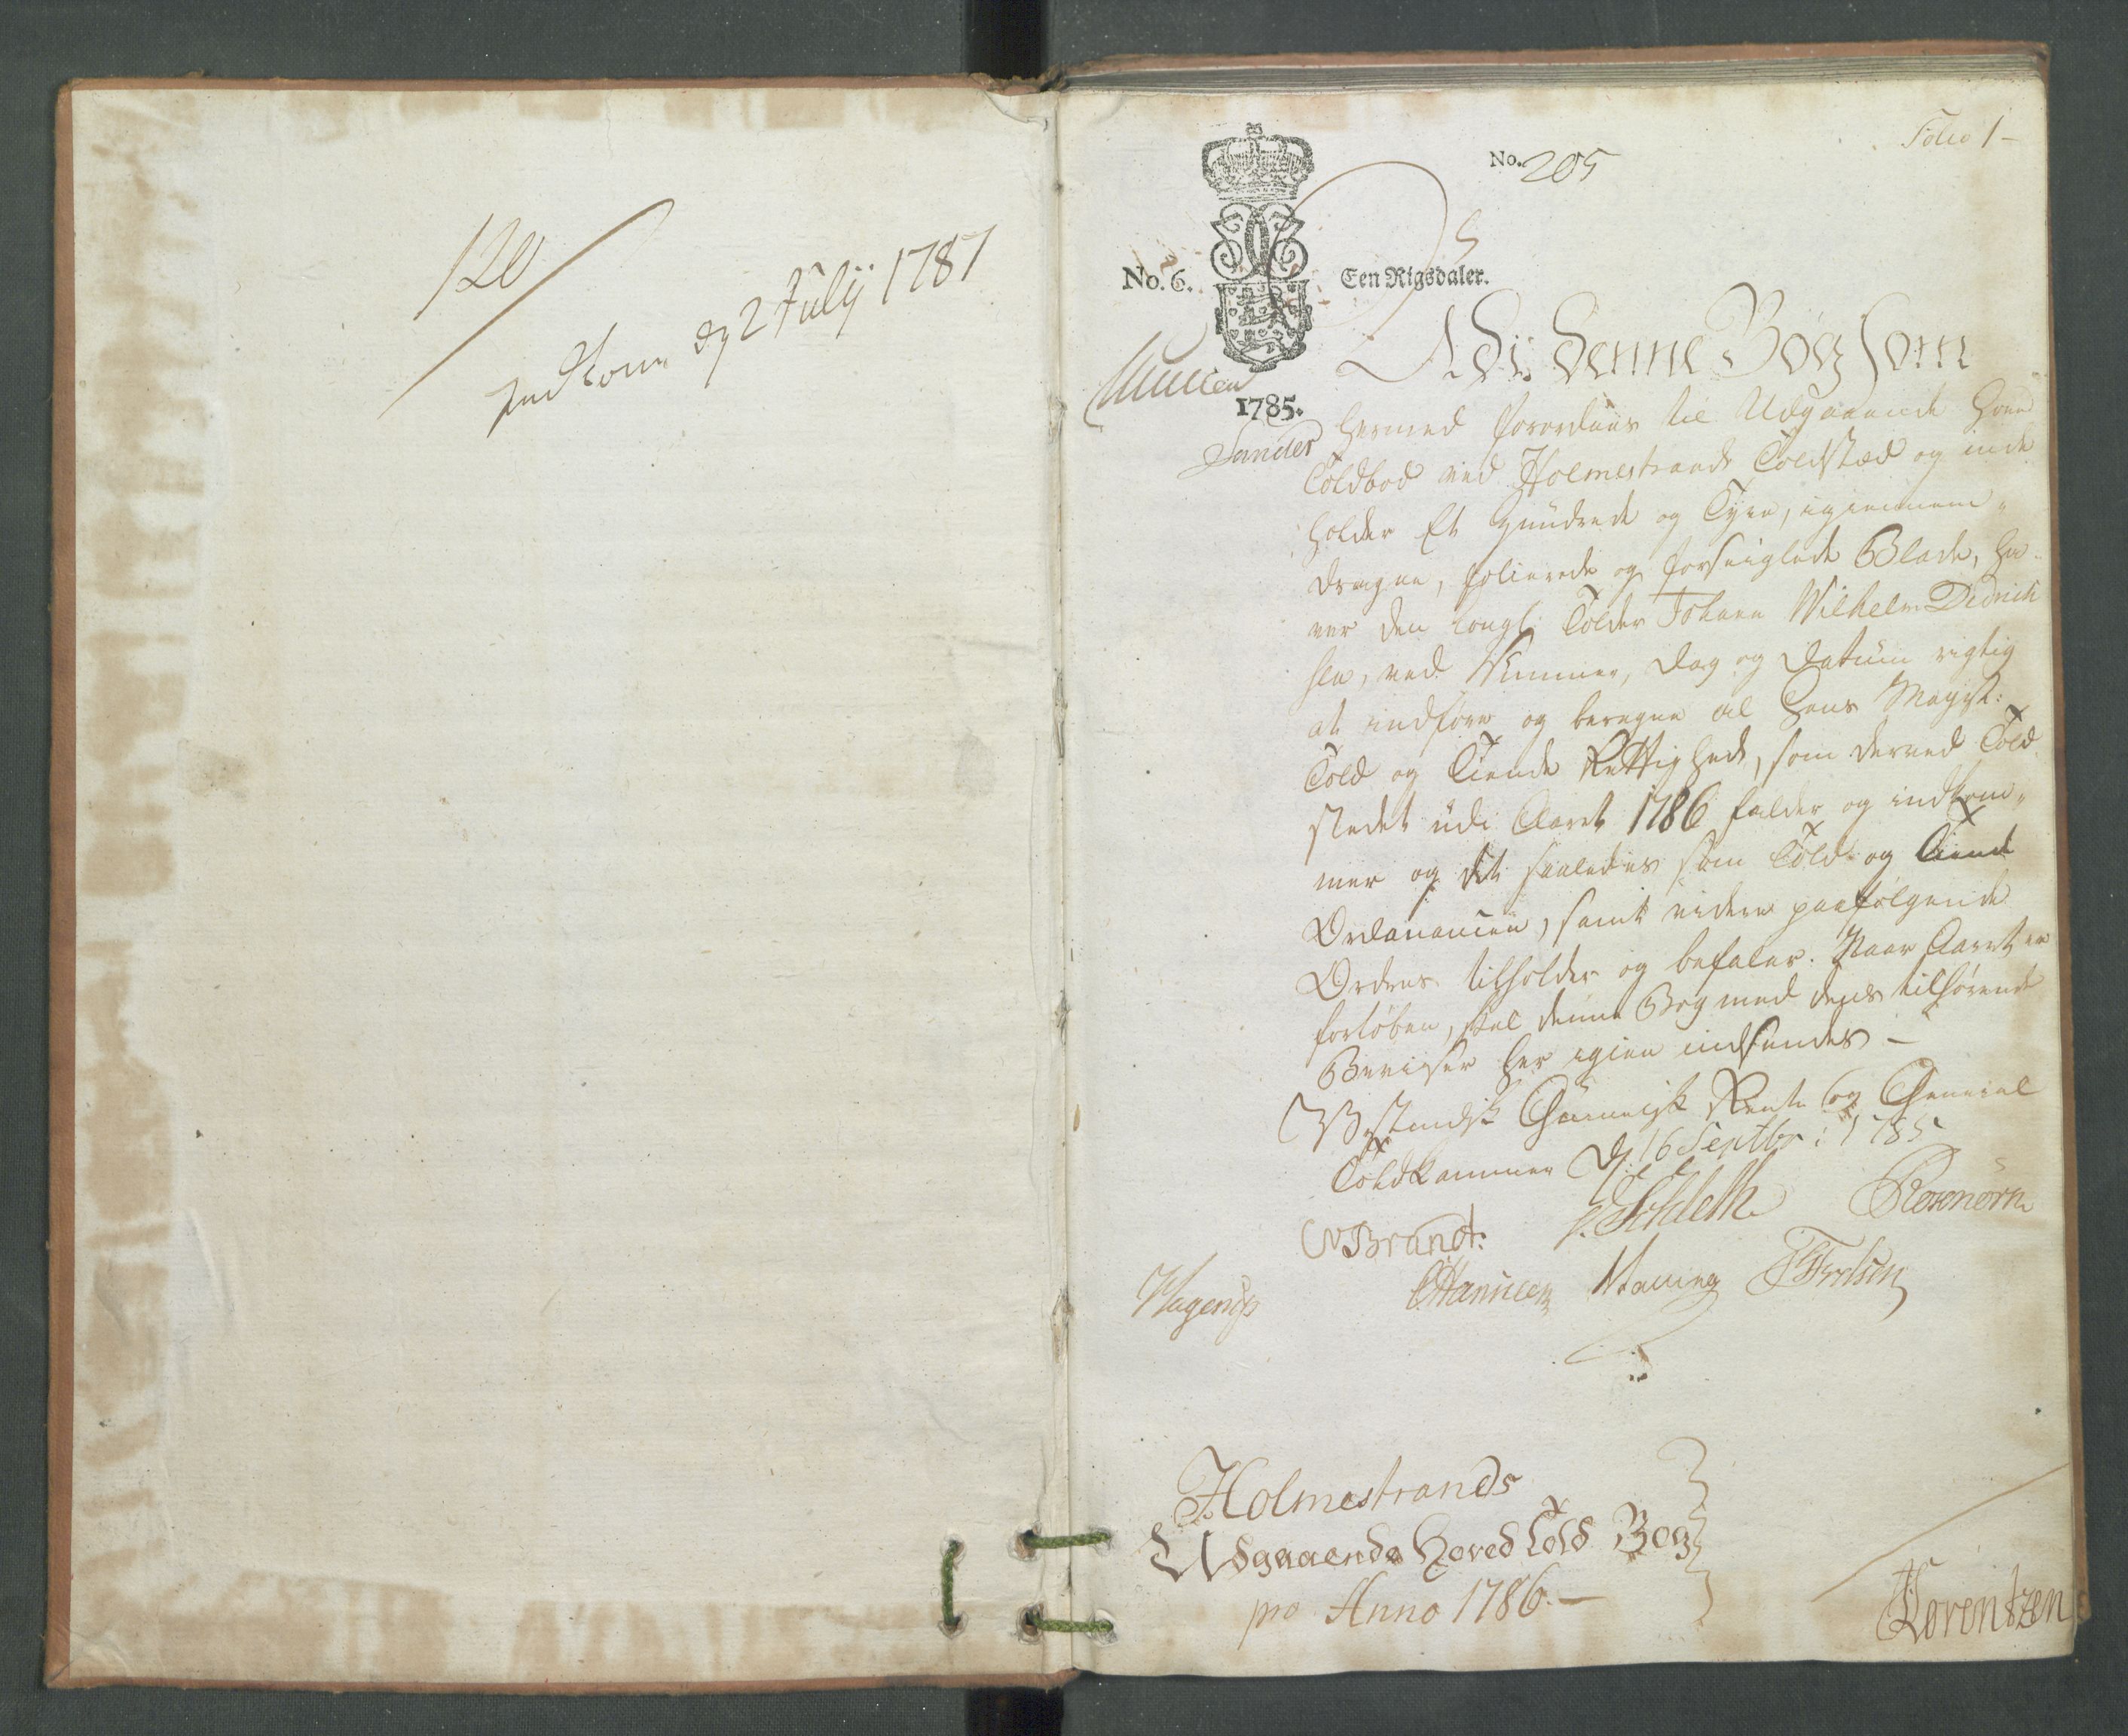 120
Indkom d 2 Julij 1787
Folio 1-
No. 205
No. 6.
Een Rigsdaler.
1785.
Sander
Udi denne Bog som
hermed forordnes til Udgaaende Hoved
Toldbod ved Holmestrands Toldsted og inde
holder Et Hundrede og Tyve, igiennem„
dragne, folierede og forseiglede Blade, ha„
ver den kongl: Tolder Johann Wilhelm Didrich
sen, ved Nummer, Dag og Datum rigtig
at indføre og beregne al Hans Mayst:
Told og Tiende Rettighed, som derved Told
stedet udi Aaret 1786 falder og indkom„
mer og det saaledes som Told- og Tiend
Ordonancen, samt videre paafølgende
Ordres tilholder og befaler. Naar Aaret er
forløben, skal denne Bog med dens tilhørende
Beviser her igien indsendes -
Vestindisk Guineisk Rente og General
Toldkammer d: 16 Septbr: 1785
Brandt:
Rosenørn
Hagerup
Hansen
Malling
Holmestrands
Udgaaende Hoved Told Bog
pro Anno 1786.-
Lorentzen